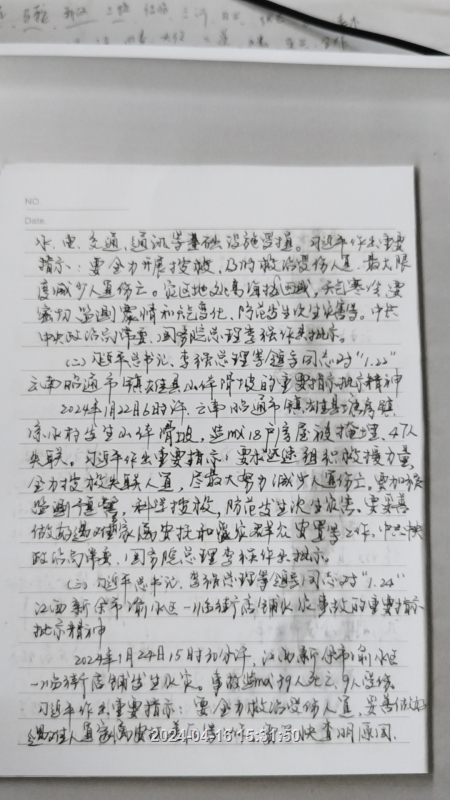 NO.
Date.
水、电、交通、通讯等基础设施受损。习近平作出重要
指示：要全力开展搜救，及时救治受伤人员，最大限
度减少人员伤亡。灾区地处高海拔区域，天气寒冷，要
密切监测震情和天气变化，防范发生次生灾害等。中共
中央政治局常委、国务院总理李强作出批示。
(二) 习近平总书记、李强总理等领导同志对“1.22”
云南昭通市镇雄县山体滑坡的重要指示批示精神
2024年1月22日6时许，云南昭通市镇雄县塘房镇
凉水村发生山体滑坡，造成18户房屋被掩埋，47人
失联。习近平作出重要指示：要求迅速组织救援力量，
全力搜救失联人员，尽最大努力减少人员伤亡，要加强
监测预警，科学搜救，防范发生次生灾害。要妥善
做好遇难家属安抚和受灾群众安置等工作。中共中央
政治局常委、国务院总理李强作出批示。
(三) 习近平总书记、李强总理等领导同志对“1.24”
江西新余市渝水区一临街店铺火灾事故的重要指示
批示精神
2024年1月24日15时许，江西新余市渝水区
一临街店铺发生火灾。事故造成39人死亡，9人受伤。
习近平作出重要指示：要全力救治受伤人员，妥善做好
遇难人员家属安抚等工作，要尽快查明原因，
2024-04-16 15:31:50